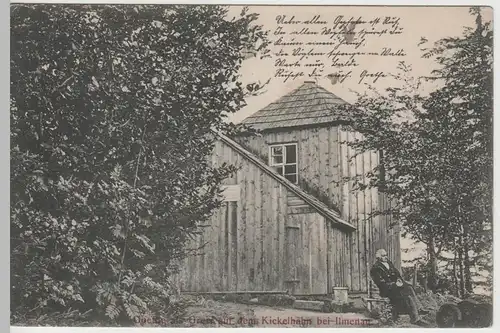 Ueber allen Gipfeln ist Ruh,
In allen Wipfeln spürest Du
Kaum einen Hauch,
die Vöglein schweigen im Walde
Warte nur, Balde
Ruhest du auch. Goethe
auf dem Kickelhahn bei Ilmenau